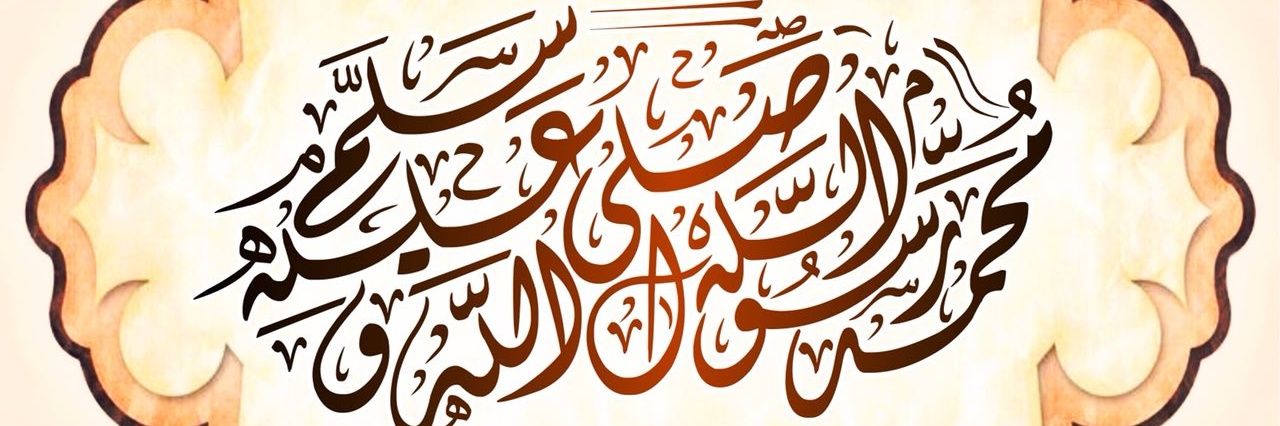 محمد رسول الله صلى الله عليه وسلم